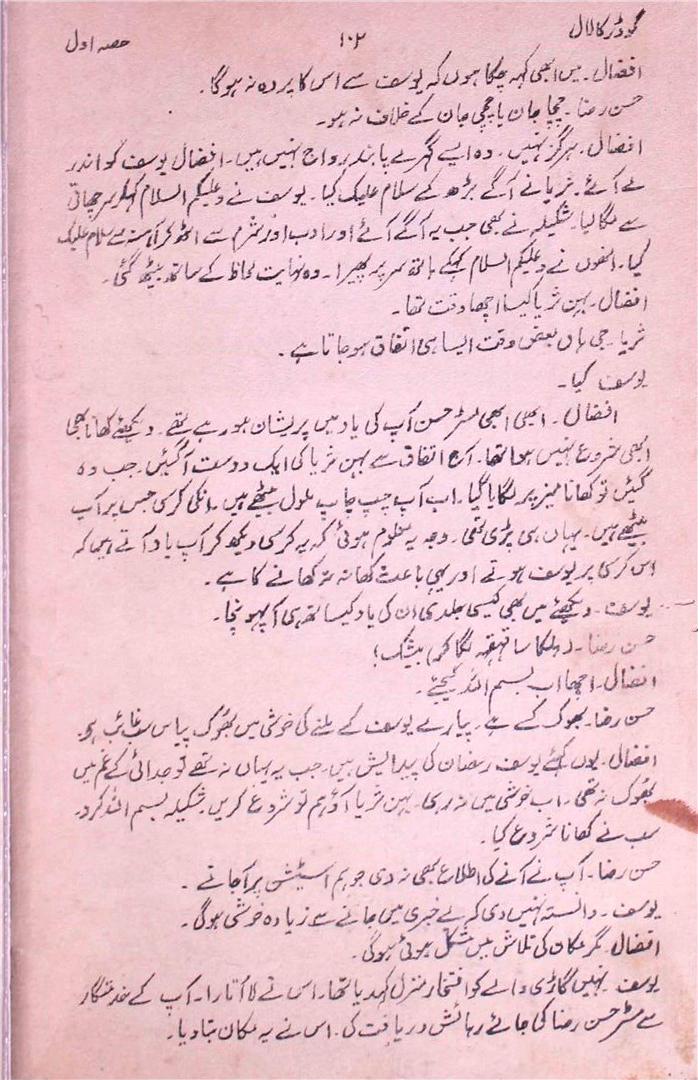 گودڑ کا لال ۱۰۲ حصہ اول
افضال۔ میں ابھی کہہ چکا ہوں کہ یوسف سے اس کا پردہ نہ ہوگا۔
حسن رضا۔ چچا جان یا چچی جان کے خلاف نہ ہو۔
افضال۔ ہرگز نہیں۔ وہ ایسے گہرے پابند رواج نہیں ہیں۔ افضال یوسف کو اندر
لے آئے۔ ثریا نے آگے بڑھ کے سلام علیک کیا۔ یوسف نے وعلیکم السلام کہکر سر چھاتی
سے لگا لیا۔ شکیلہ نے بھی جب یہ آگے آئے اور ادب اور شرم سے اٹھ کر آہستہ سے سلام علیک
کیا۔ انھوں نے وعلیکم السلام کہکے ہاتھ سر پر پھیرا۔ وہ نہایت لحاظ کے ساتھ بیٹھ گئی۔
افضال۔ بہن ثریا کیسا اچھا وقت تھا۔
ثریا۔ جی ہاں بعض وقت ایسا ہی اتفاق ہو جاتا ہے۔
یوسف کیا۔
افضال۔ ابھی ابھی مسٹر حسن آپ کی یاد میں پریشان ہو رہے تھے۔ دیکھئے کھانا بھی
ابھی شروع نہیں ہوا تھا۔ آج اتفاق سے بہن ثریا کی ایک دوست آگئیں۔ جب وہ
گئیں تو کھانا میز پر لگایا گیا۔ اب آپ چپ چاپ ملول بیٹھے ہیں۔ انکی کرسی جس پر آپ
بیٹھے ہیں۔ یہاں ہی پڑی تھی۔ وجہ یہ معلوم ہوئی کہ یہ کرسی دیکھ کر آپ یاد آتے ہیں کہ
اس کرسی پر یوسف ہوتے اور یہی باعث کھانا نہ کھانے کا ہے۔
یوسف۔ دیکھئے میں بھی کیسی جلدی ان کی یاد کیساتھ ہی آ پہونچا۔
حسن رضا۔ (ہلکا سا قہقہہ لگا کر) بیشک!
افضال۔ اچھا اب بسم اللہ کیجئے۔
حسن رضا۔ بھوک کسے ہے۔ پیارے یوسف کے ملنے کی خوشی میں بھوک پیاس سب غائب ہے۔
افضال۔ یوں کہئے یوسف رمضان کی پیدایش ہیں۔ جب یہ یہاں نہ تھے تو جدائی کے غم میں
بھوک نہ تھی۔ اب خوشی میں نہ رہی۔ بہن ثریا آؤ ہم تو شروع کریں۔ شکیلہ بسم اللہ کرو۔
سب نے کھانا شروع کیا۔
حسن رضا۔ آپ نے آنے کی اطلاع بھی نہ دی جو ہم اسٹیشن پر آجاتے۔
یوسف۔ دانستہ نہیں دی کہ بے خبری میں جانے سے زیادہ خوشی ہوگی۔
افضال۔ مگر مکان کی تلاش میں مشکل ہوئی ہوگی۔
یوسف۔ نہیں گاڑی والے کو افتخار منزل کہدیا تھا۔ اس نے لا اتارا۔ آپ کے خدمتگار
سے مسٹر حسن رضا کی جائے رہائش دریافت کی۔ اس نے یہ مکان بتا دیا۔